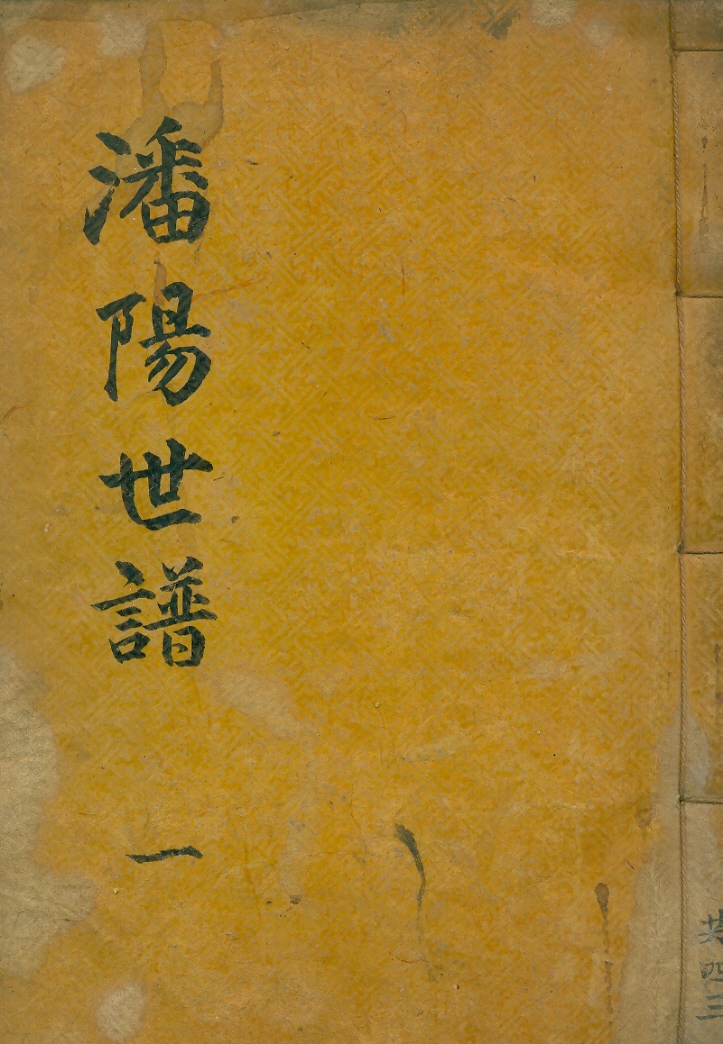 潘陽世譜
一
共四三